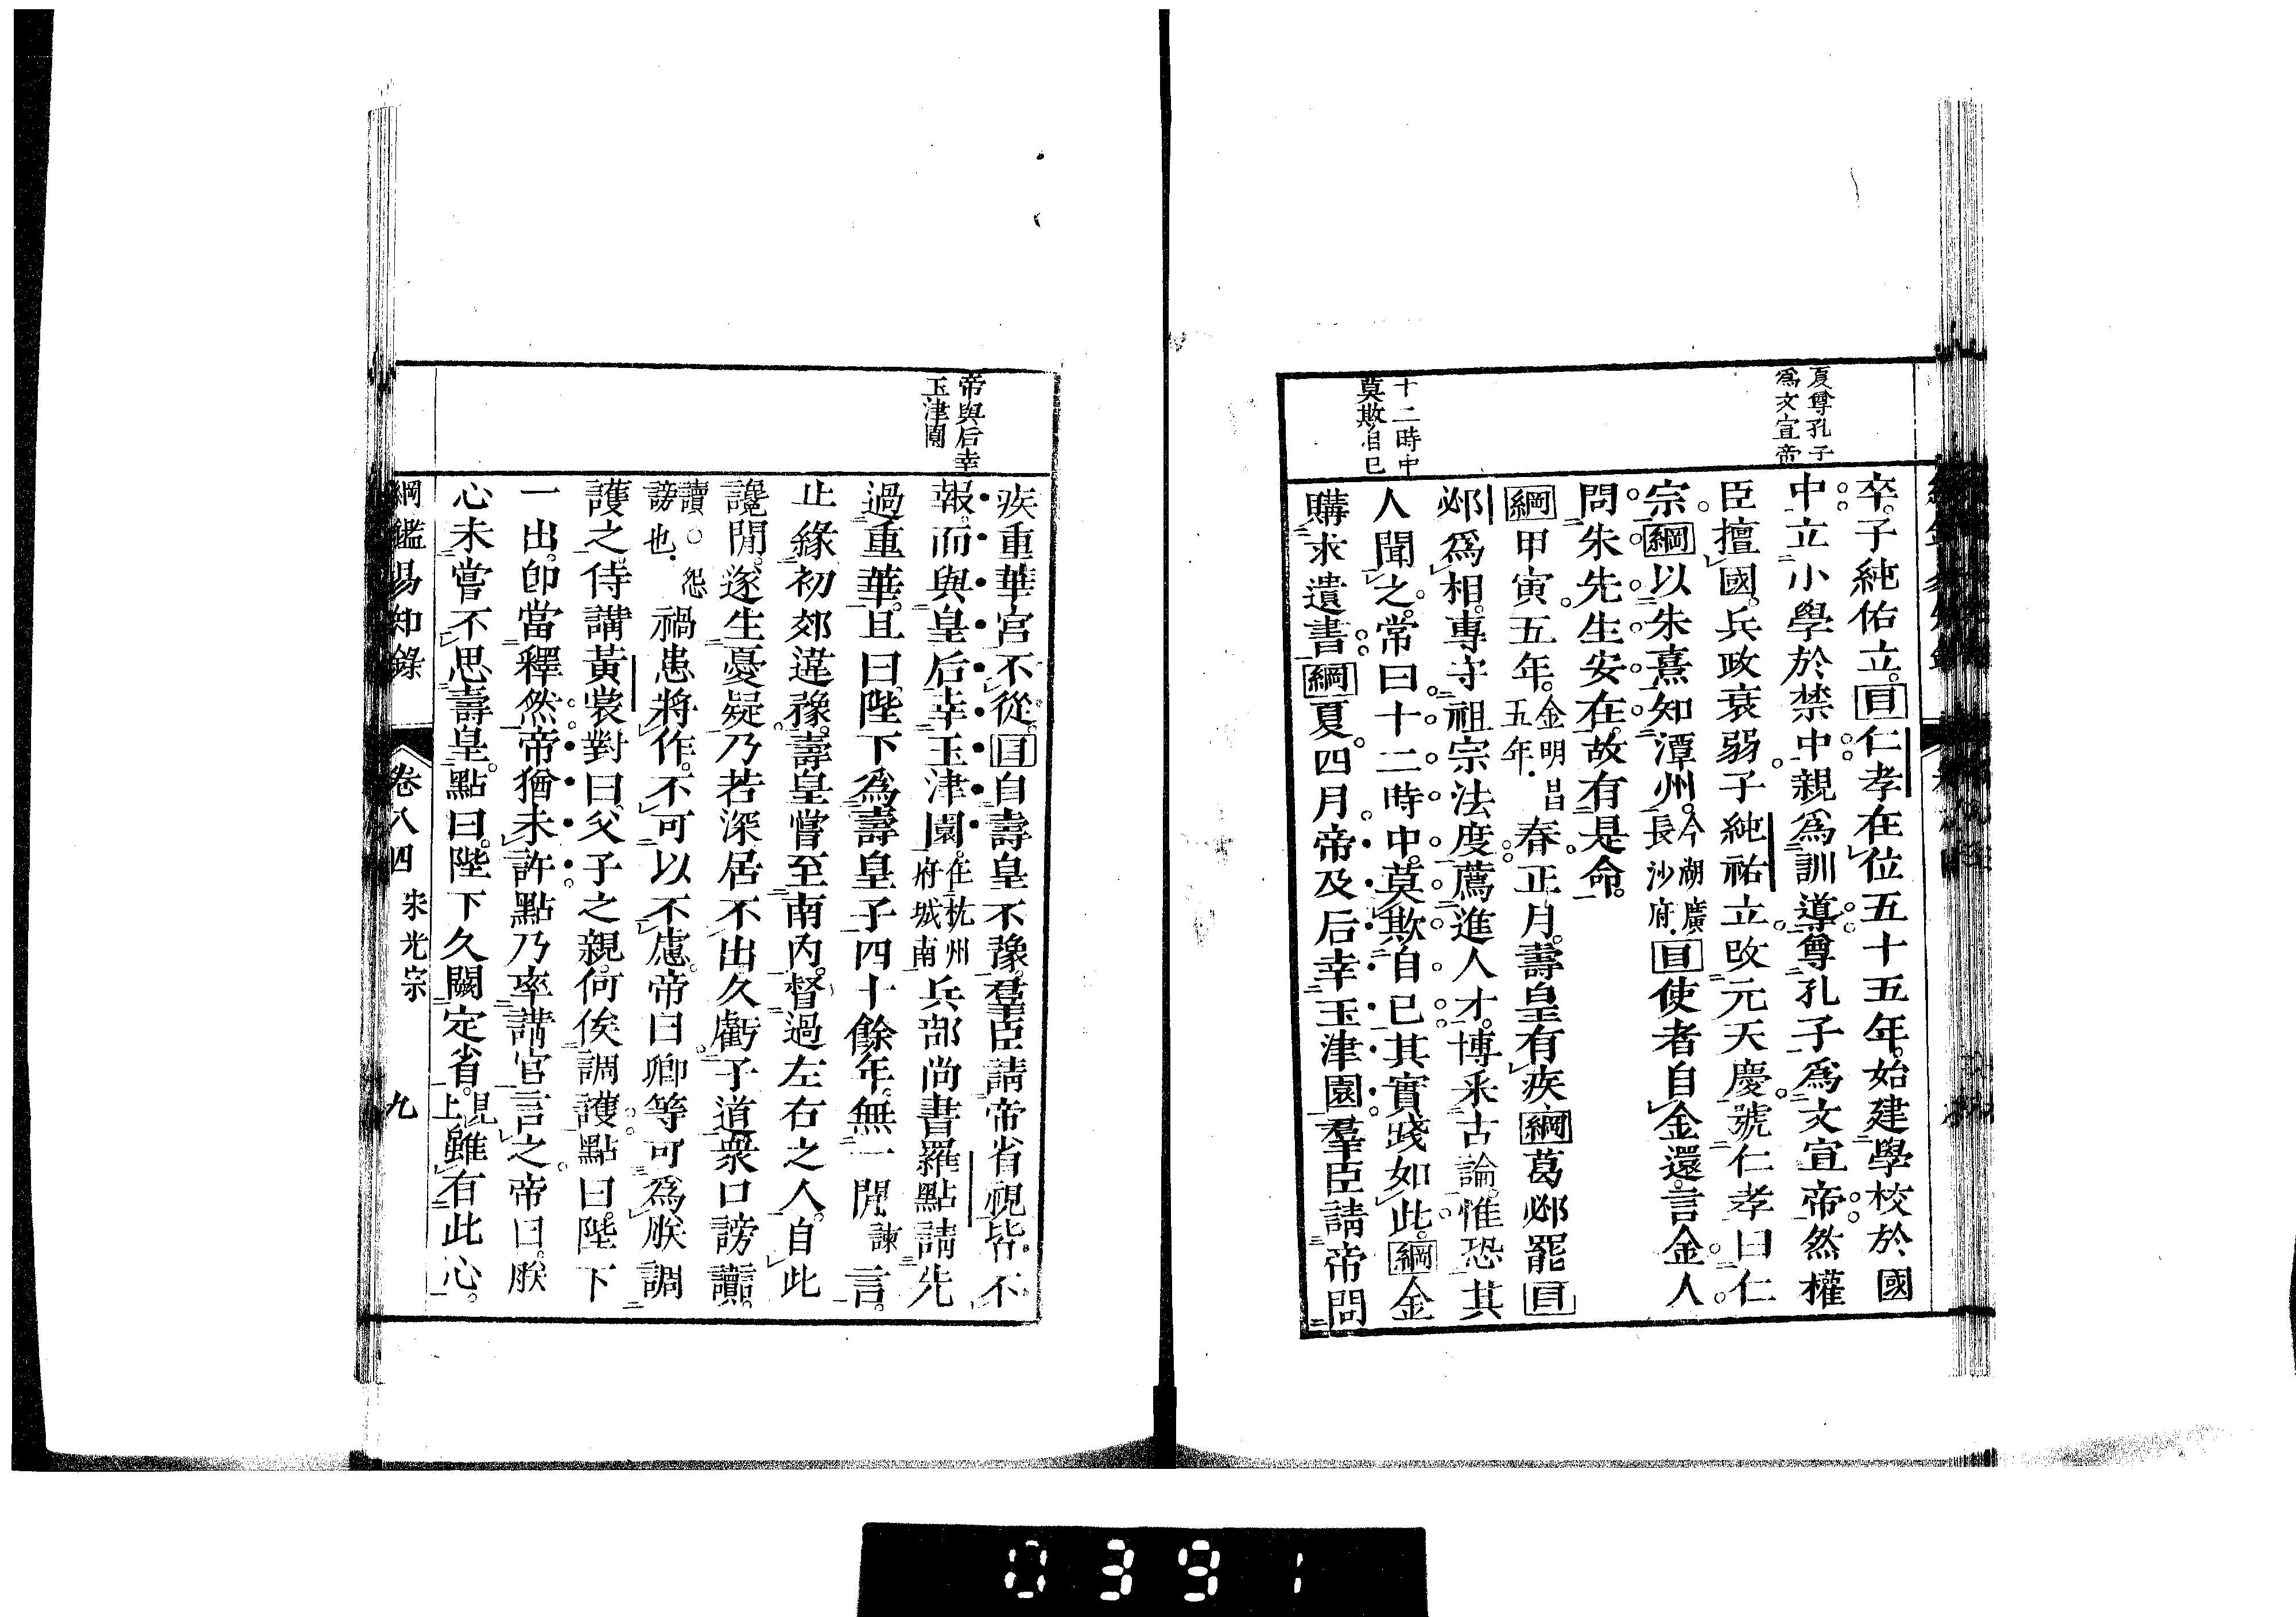 夏尊孔子
爲文宣帝
十二時中
莫欺自已
卒子純佑立目仁孝在位五十五年始建學校於國
中立小學於禁中親爲訓導尊孔子爲文宣帝然權
臣擅國兵政衰弱子純祐立改元天慶號仁孝曰仁
宗綱以朱熹知潭州今湖廣長沙府目使者自金還言金人
問朱先生安在故有是命
綱甲寅五年金明昌五年春正月壽皇有疾綱葛邲罷目
邲爲相專守祖宗法度薦進人才博采古論惟恐其
人聞之常曰十二時中莫欺自已其實踐如此綱金
購求遺書綱夏四月帝及后幸玉津園羣臣請帝問
帝與后幸
玉津園
疾重華宮不從目自壽皇不豫羣臣請帝省視皆不
報而與皇后幸玉津園在杭州府城南兵部尚書羅點請先
過重華且曰陛下爲壽皇子四十餘年無一閒諫言
止緣初郊違豫壽皇嘗至南內督過左右之人自此
讒閒遂生憂疑乃若深居不出久虧子道衆口謗讟
讀○怨謗也禍患將作不可以不慮帝曰卿等可爲朕調
護之侍講黃裳對曰父子之親何俟調護點曰陛下
一出卽當釋然帝猶未許點乃率講官言之帝曰朕
心未嘗不思壽皇點曰陛下久闕定省見上雖有此心
綱鑑易知錄 卷八四 宋光宗 九
0391